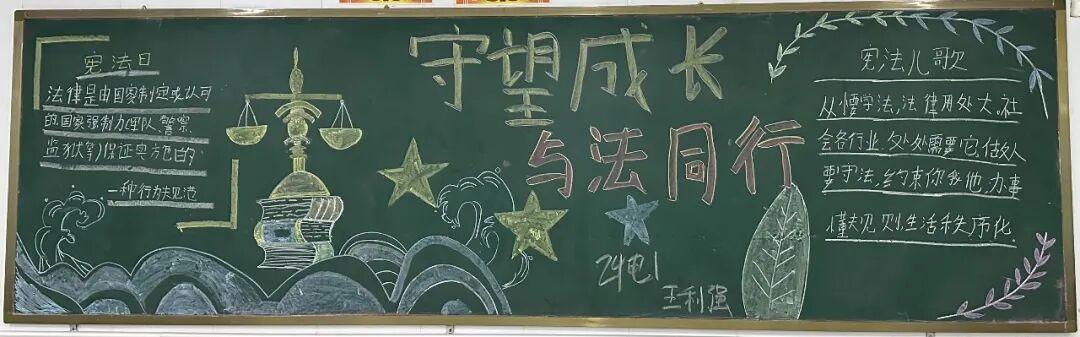 宪法日
法律是由国家制定或认可
的国家强制力(军队、警察、
监狱等)保证实方包的
一种行为规范
守望成长
与法同行
24电1
王利强
宪法儿歌
从懂学法,法律用处大,社
会各行业,处处需要它,做人
要守法,约束你我他,办事
懂规则,生活秩序化.